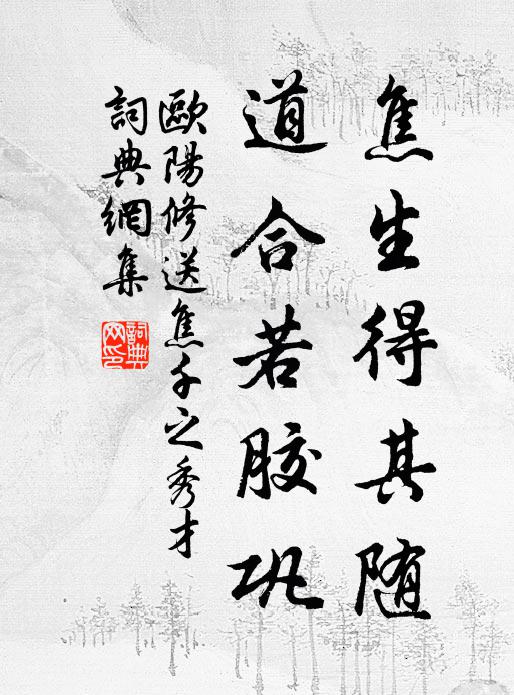 焦生得其随
道合若胶巩
歐陽修送焦千之秀才
詞典網集
詞典網印